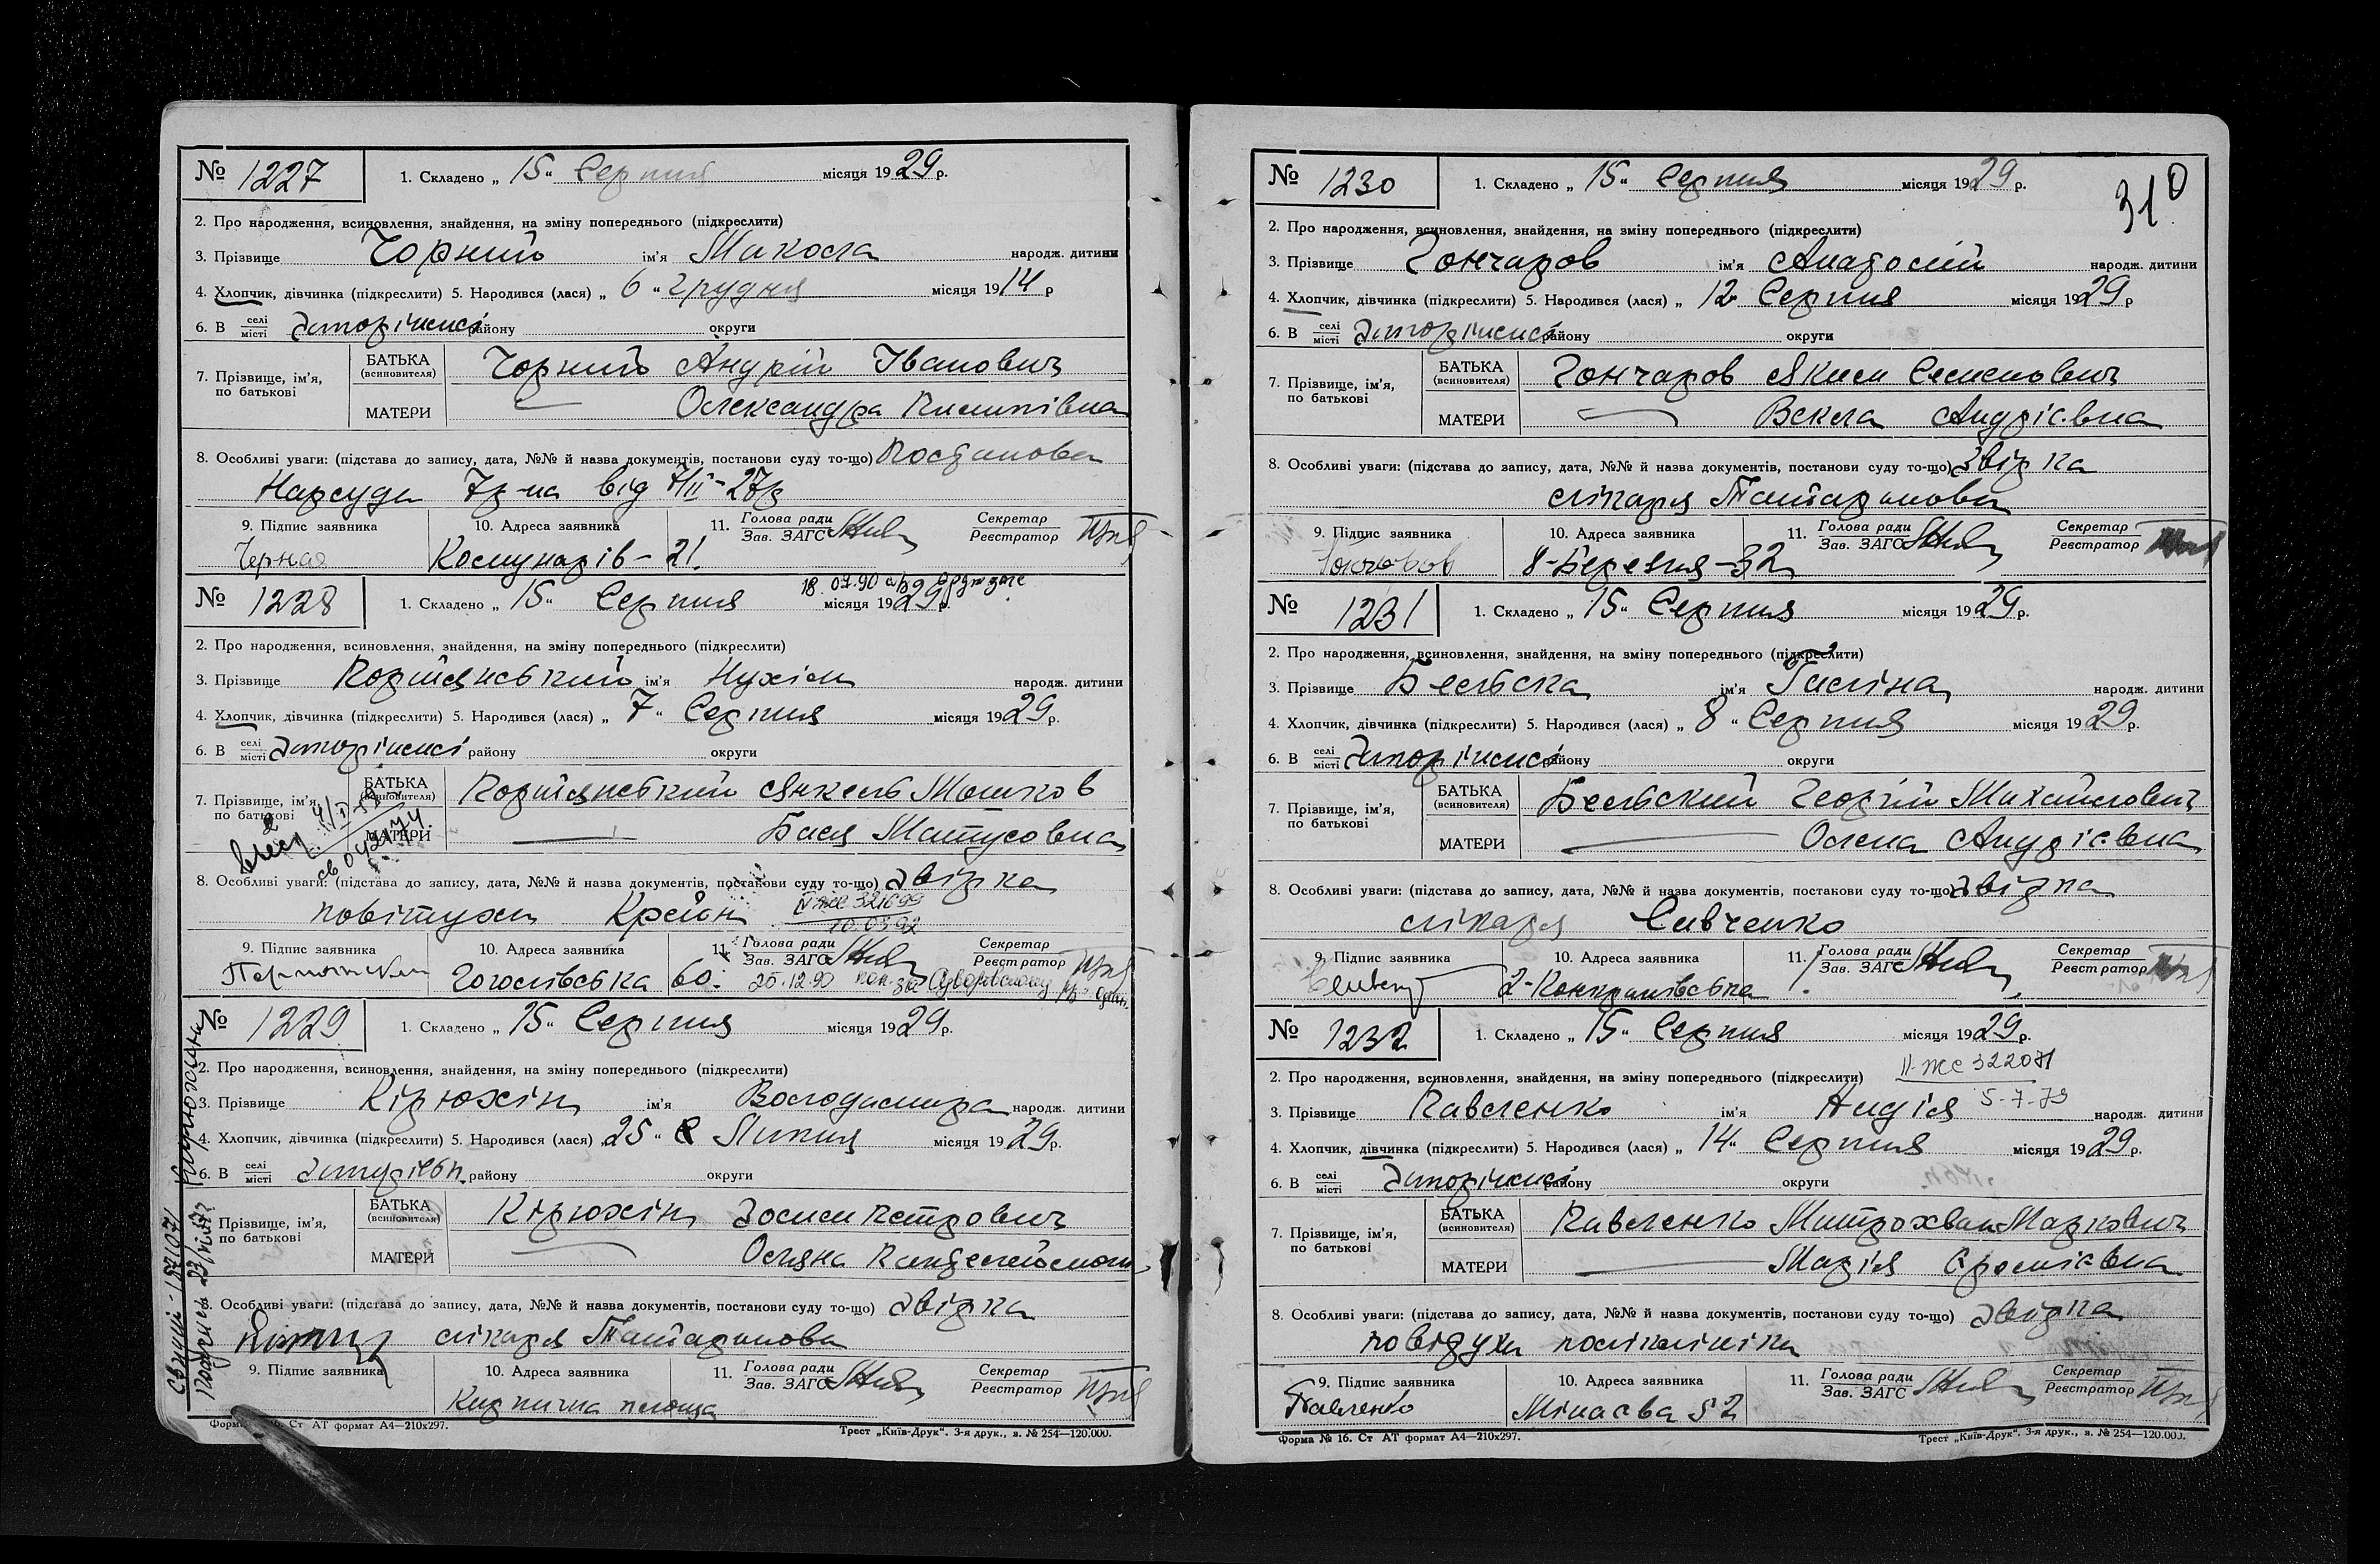 № 1227
1. Складено „ 15 “ Серпня місяця 1929 р.
2. Про народження, всиновлення, знайдення, на зміну попереднього (підкреслити)
3. Прізвище Чорний ім'я Микола народж. дитини
4. Хлопчик, дівчинка (підкреслити) 5. Народився (лася) „ 6 “ Грудня місяця 1914 р
6. В селі місті району округи
7. Прізвище, ім'я, по батькові
БАТЬКА (всиновителя) Чорний Андрій Іванович
МАТЕРИ — Олександра Пилипівна
8. Особливі уваги: (підстава до запису, дата, №№ й назва документів, постанови суду то-що) Постанова
Нарсуда 7р-на від 7/II-27р
9. Підпис заявника 10. Адреса заявника 11. Голова ради Зав. ЗАГС Секретар Реєстратор
Черная Комунарів - 21.
№ 1228
18.07.90
1. Складено „ 15 “ Серпня місяця 1929 р.
2. Про народження, всиновлення, знайдення, на зміну попереднього (підкреслити)
3. Прізвище ім'я Нухім народж. дитини
4. Хлопчик, дівчинка (підкреслити) 5. Народився (лася) „ 7 “ Серпня місяця 1929 р.
6. В селі місті району округи
7. Прізвище, ім'я, по батькові
БАТЬКА (всиновителя) Янкель Мошков
МАТЕРИ — Бася Матусовна
8. Особливі уваги: (підстава до запису, дата, №№ й назва документів, постанови суду то-що) Звірка
повітухи
10.03.92
9. Підпис заявника 10. Адреса заявника 11. Голова ради Зав. ЗАГС Секретар Реєстратор
Гоголівська 60. 25.12.90
№ 1229
1. Складено „ 15 “ Серпня місяця 1929 р.
2. Про народження, всиновлення, знайдення, на зміну попереднього (підкреслити)
3. Прізвище Кірюхін ім'я Володимира народж. дитини
4. Хлопчик, дівчинка (підкреслити) 5. Народився (лася) 25 “ Липня місяця 1929 р.
6. В селі місті району округи
7. Прізвище, ім'я, по батькові
БАТЬКА (всиновителя) Кірюхін Петрович
МАТЕРИ —
8. Особливі уваги: (підстава до запису, дата, №№ й назва документів, постанови суду то-що) Звірка
лікаря Татаринова
9. Підпис заявника 10. Адреса заявника 11. Голова ради Зав. ЗАГС Секретар Реєстратор
Кирпична площа
Форма № 16. Ст АТ формат А4—210х297.
Трест „Київ-Друк“. 3-я друк., з. № 254—120.000.
310
№ 1230
1. Складено „ 15 “ Серпня місяця 1929 р.
2. Про народження, всиновлення, знайдення, на зміну попереднього (підкреслити)
3. Прізвище Гончаров ім'я Анатолій народж. дитини
4. Хлопчик, дівчинка (підкреслити) 5. Народився (лася) „ 12 Серпня місяця 1929 р
6. В селі місті району округи
7. Прізвище, ім'я, по батькові
БАТЬКА (всиновителя) Гончаров Яким Семенович
МАТЕРИ — Векла Андрієвна
8. Особливі уваги: (підстава до запису, дата, №№ й назва документів, постанови суду то-що) Звірка
лікаря Татаринова
9. Підпис заявника 10. Адреса заявника 11. Голова ради Зав. ЗАГС Секретар Реєстратор
8-Березня-32
№ 1231
1. Складено „ 15 “ Серпня місяця 1929 р.
2. Про народження, всиновлення, знайдення, на зміну попереднього (підкреслити)
3. Прізвище Бельска ім'я Галіна народж. дитини
4. Хлопчик, дівчинка (підкреслити) 5. Народився (лася) „ 8 “ Серпня місяця 1929 р.
6. В селі місті району округи
7. Прізвище, ім'я, по батькові
БАТЬКА (всиновителя) Бельский Георгій Михайлович
МАТЕРИ — Олена Андрієвна
8. Особливі уваги: (підстава до запису, дата, №№ й назва документів, постанови суду то-що) Звірка
лікаря Савченко
9. Підпис заявника 10. Адреса заявника 11. Голова ради Зав. ЗАГС Секретар Реєстратор
№ 1232
1. Складено „ 15 “ Серпня місяця 1929 р.
II-ЖС 322071
2. Про народження, всиновлення, знайдення, на зміну попереднього (підкреслити)
5-7-79
3. Прізвище Павленко ім'я Надія народж. дитини
4. Хлопчик, дівчинка (підкреслити) 5. Народився (лася) „ 14 “ Серпня місяця 1929 р.
6. В селі місті району округи
7. Прізвище, ім'я, по батькові
БАТЬКА (всиновителя) Павленко Митрохван Маркович
МАТЕРИ — Марія
8. Особливі уваги: (підстава до запису, дата, №№ й назва документів, постанови суду то-що) Звірка
9. Підпис заявника 10. Адреса заявника 11. Голова ради Зав. ЗАГС Секретар Реєстратор
Павленко Мінаєва 52
Форма № 16. Ст АТ формат А4—210х297.
Трест „Київ-Друк“. 3-я друк., з. № 254—120.000.